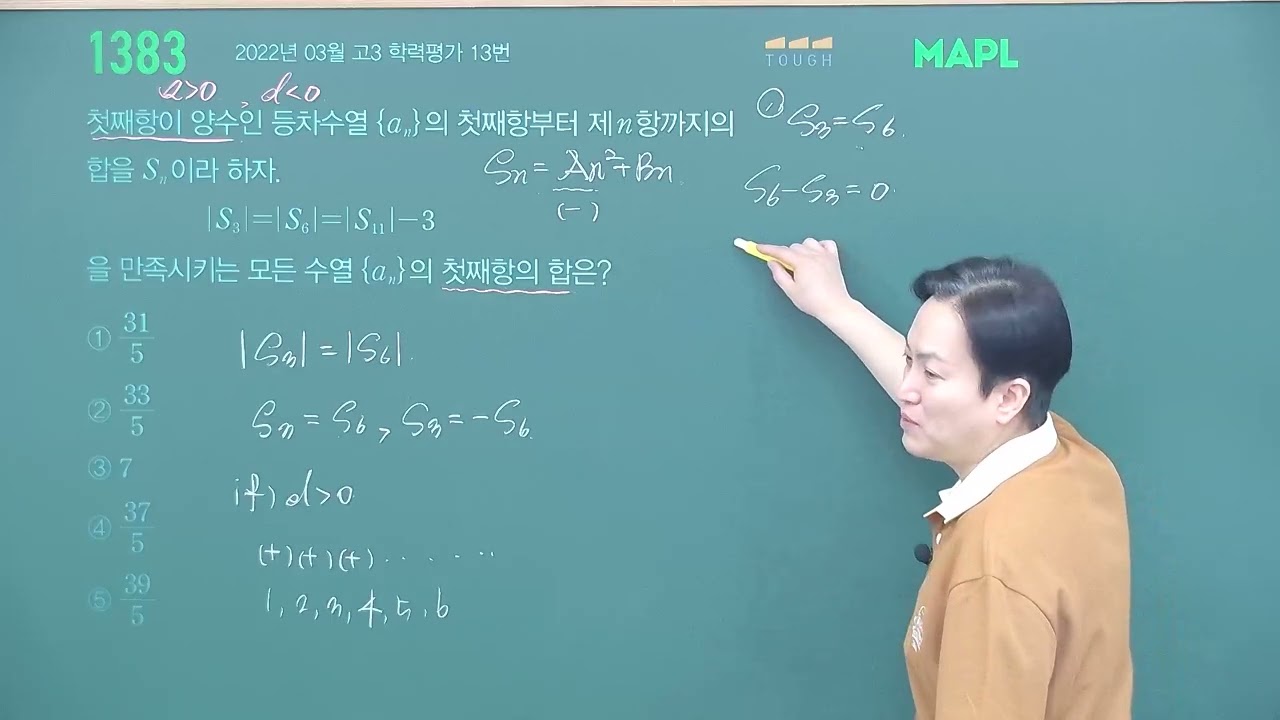 1383 2022년 03월 고3 학력평가 13번
TOUGH
MAPL
a>0, d<0
첫째항이 양수인 등차수열 {aₙ}의 첫째항부터 제n항까지의
합을 Sₙ이라 하자.
Sn = An²+Bn
(-)
|S₃|=|S₆|=|S₁₁|-3
을 만족시키는 모든 수열 {aₙ}의 첫째항의 합은?
① 31/5
② 33/5
③ 7
④ 37/5
⑤ 39/5
|S3|=|S6|.
S3=S6, S3=-S6.
if) d>0
(+)(+)(+).......
1, 2, 3, 4, 5, 6
① S3=S6.
S6-S3=0.